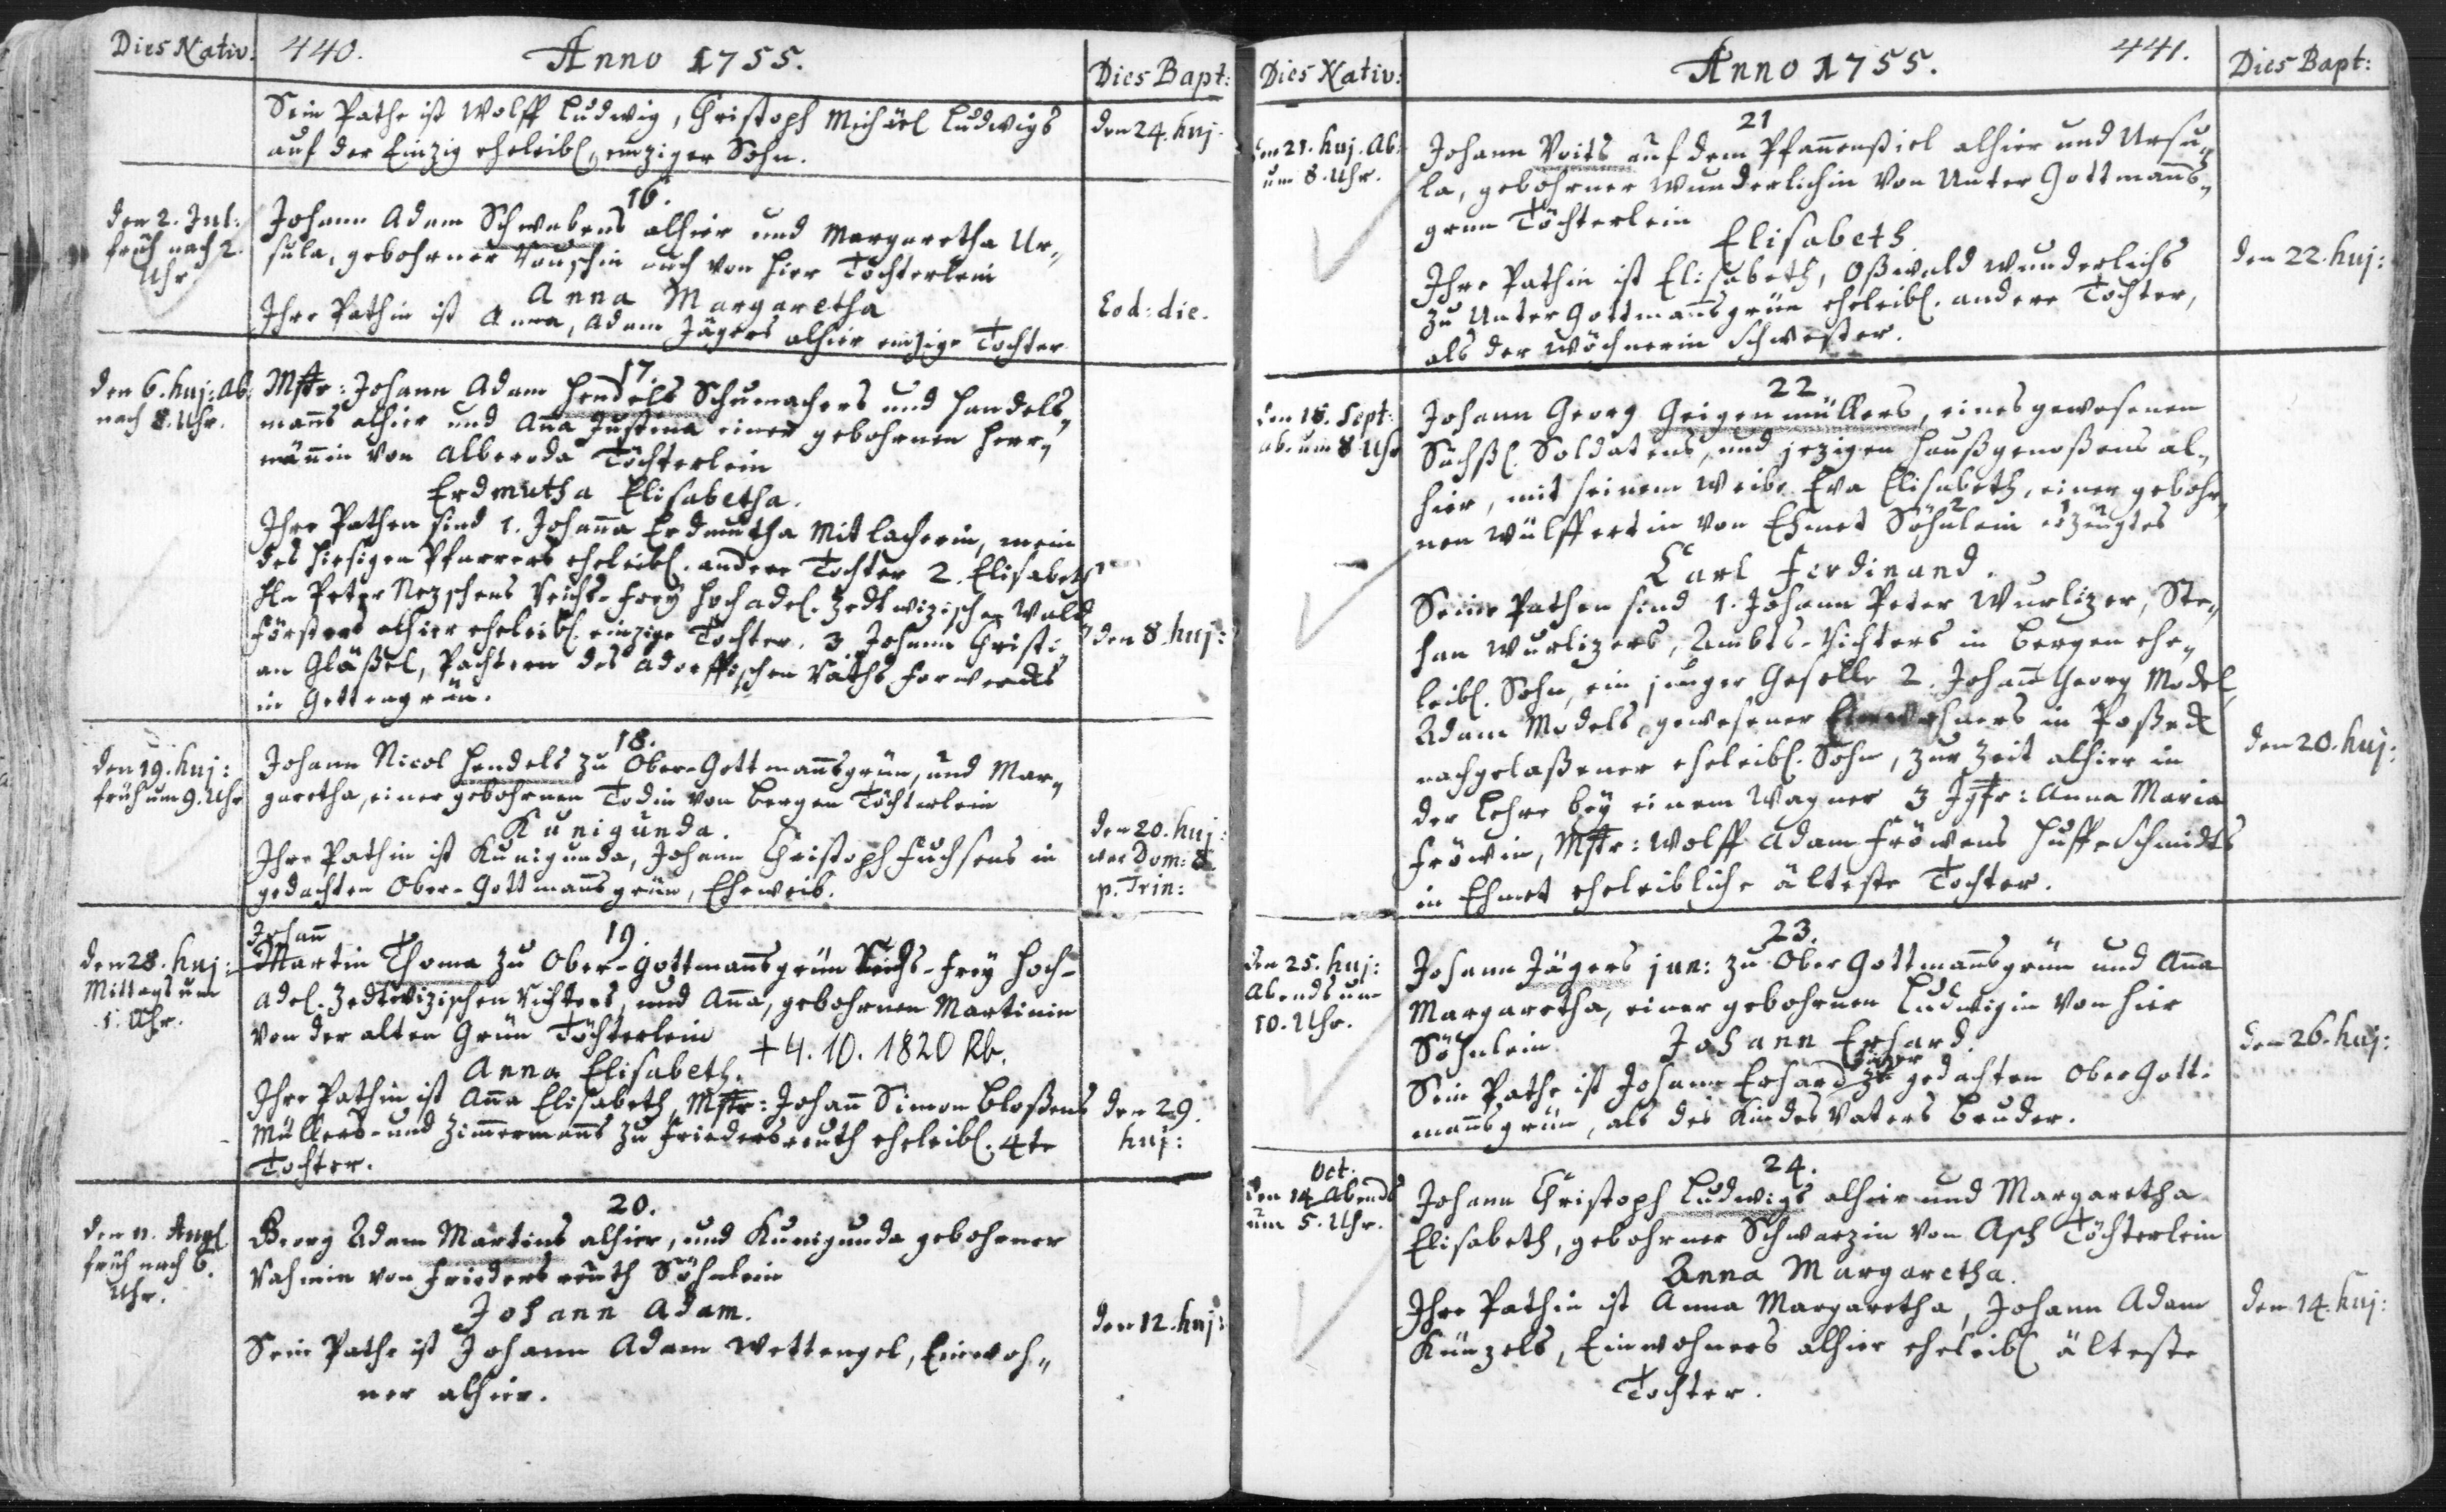 Dies Nativ: 440. Anno 1755. Dies Bapt:
Sein Pathe ist Wolff Ludwig, Christoph Michäel Ludwigs
auf der Einzig eheleibl. einziger Sohn.
den 24. huj.
16.
den 2. Jul:
früh nach 2.
Uhr.
Johann Adam Schwabens alhier und Margaretha Ur„
sula, gebohrner auch von hier Töchterlein
Anna Margaretha
Ihre Pathin ist Anna, Adam Jägers alhier einzige Tochter
Eod: die.
17.
den 6. huj: Ab.
nach 8. Uhr.
Mstr: Johann Adam Hendels Schumachers und Handels„
manns alhier und Anna Justina einer gebohrnen Herr„
männin von Alberoda Töchterlein
Erdmutha Elisabetha.
Ihre Pathen sind 1. Johanna Erdmutha Mitlacherin, mein
des hiesigen Pfarrers eheleibl. andere Tochter 2. Elisabeth
Hn Peter Nezschens Reichs-Frey Hochadel. Zedtwizischen Wald„
försters alhier eheleibl. einzige Tochter. 3. Johann Christi„
an Gläßel, Pachters des Adorffischen Raths Forwercks
in Gettengrün.
den 8. huj:
18.
den 19. huj:
früh um 9. Uhr
Johann Nicol Hendels zu Ober-Gottmannsgrün, und Mar„
garetha, einer gebohrnen Todin von Bergen Töchterlein
Kunigunda.
Ihre Pathin ist Kunigunda, Johann Christoph Fuchsens in
gedachten Ober-Gottmannsgrün, Eheweib.
den 20. huj:
war Dom: 8
p. Trin:
19.
den 28. huj:
Mittags um
1. Uhr.
Johann
Martin Thoma zu Ober-Gottmannsgrün Reichs-Frey Hoch-
adel. Zedtwizischen Richters, und Anna, gebohrnen Martinin
von der alten Grün Töchterlein
+ 4. 10. 1820 Rb.
Anna Elisabeth.
Ihre Pathin ist Anna Elisabeth, Mstr: Johann Simon Bloßens
Müllers- und Zimmermanns zu Friedersreuth eheleibl. 4te
Tochter.
den 29.
huj:
20.
den 11. Aug.
früh nach 6.
Uhr.
Georg Adam Martins alhier, und Kunigunda gebohrner
Rahmin von Friedersreuth Söhnlein
Johann Adam.
Sein Pathe ist Johann Adam Wettengel, Einwoh„
ner alhier.
den 12. huj:
Dies Nativ: Anno 1755. 441. Dies Bapt:
21
den 21. huj. Ab.
um 8. Uhr.
Johann Voits auf dem Pfannenstiel alhier und Ursu„
la, gebohrner Wunderlichin von Unter Gottmanns„
grün Töchterlein
Elisabeth.
Ihre Pathin ist Elisabeth, Oßwald Wunderlichs
zu Unter Gottmannsgrün eheleibl. andere Tochter,
als der Wöchnerin Schwester.
den 22. huj:
22
den 18. Sept:
Ab. um 8 Uhr
Johann Georg Geigenmüllers, eines gewesenen
Sächßl. Soldatens, und jezigen Haußgenoßens al„
hier, mit seinem Weibe Eva Elisabeth, einer gebohr„
nen Wülffertin von Ehmet Söhnlein erzeugtes
Carl Ferdinand.
Seine Pathen sind 1. Johann Peter Wurlizer, Ste„
han Wurlizers, Ambts-Richters in Bergen ehe„
leibl. Sohn, ein junger Geselle 2. Johann Georg Model,
Adam Models, gewesener Einwohners in Poßeck
nachgelaßener eheleibl. Sohn, zur Zeit alhier in
der Lehre bey einem Wagner 3 Jgfr: Anna Maria
Fröwin, Mstr: Wolff Adam Fröwens Huff-Schmidts
in Ehmet eheleibliche älteste Tochter.
den 20. huj:
23.
den 25. huj:
Abends um
10. Uhr.
Johann Jägers jun: zu Ober Gottmannsgrün und Anna
Margaretha, einer gebohrnen Ludwigin von hier
Söhnlein Johann Erhard.
Sein Pathe ist Johann Erhard Jäger zu gedachten Ober Gott„
mannsgrün, als des Kindes Vaters Bruder.
den 26. huj:
24.
Oct.
den 14 Abends
um 5. Uhr.
Johann Christoph Ludwigs alhier und Margaretha
Elisabeth, gebohrner Schwarzin von Asch Töchterlein
Anna Margaretha.
Ihre Pathin ist Anna Margaretha, Johann Adam
Künzels, Einwohners alhier eheleibl älteste
Tochter.
den 14. huj: